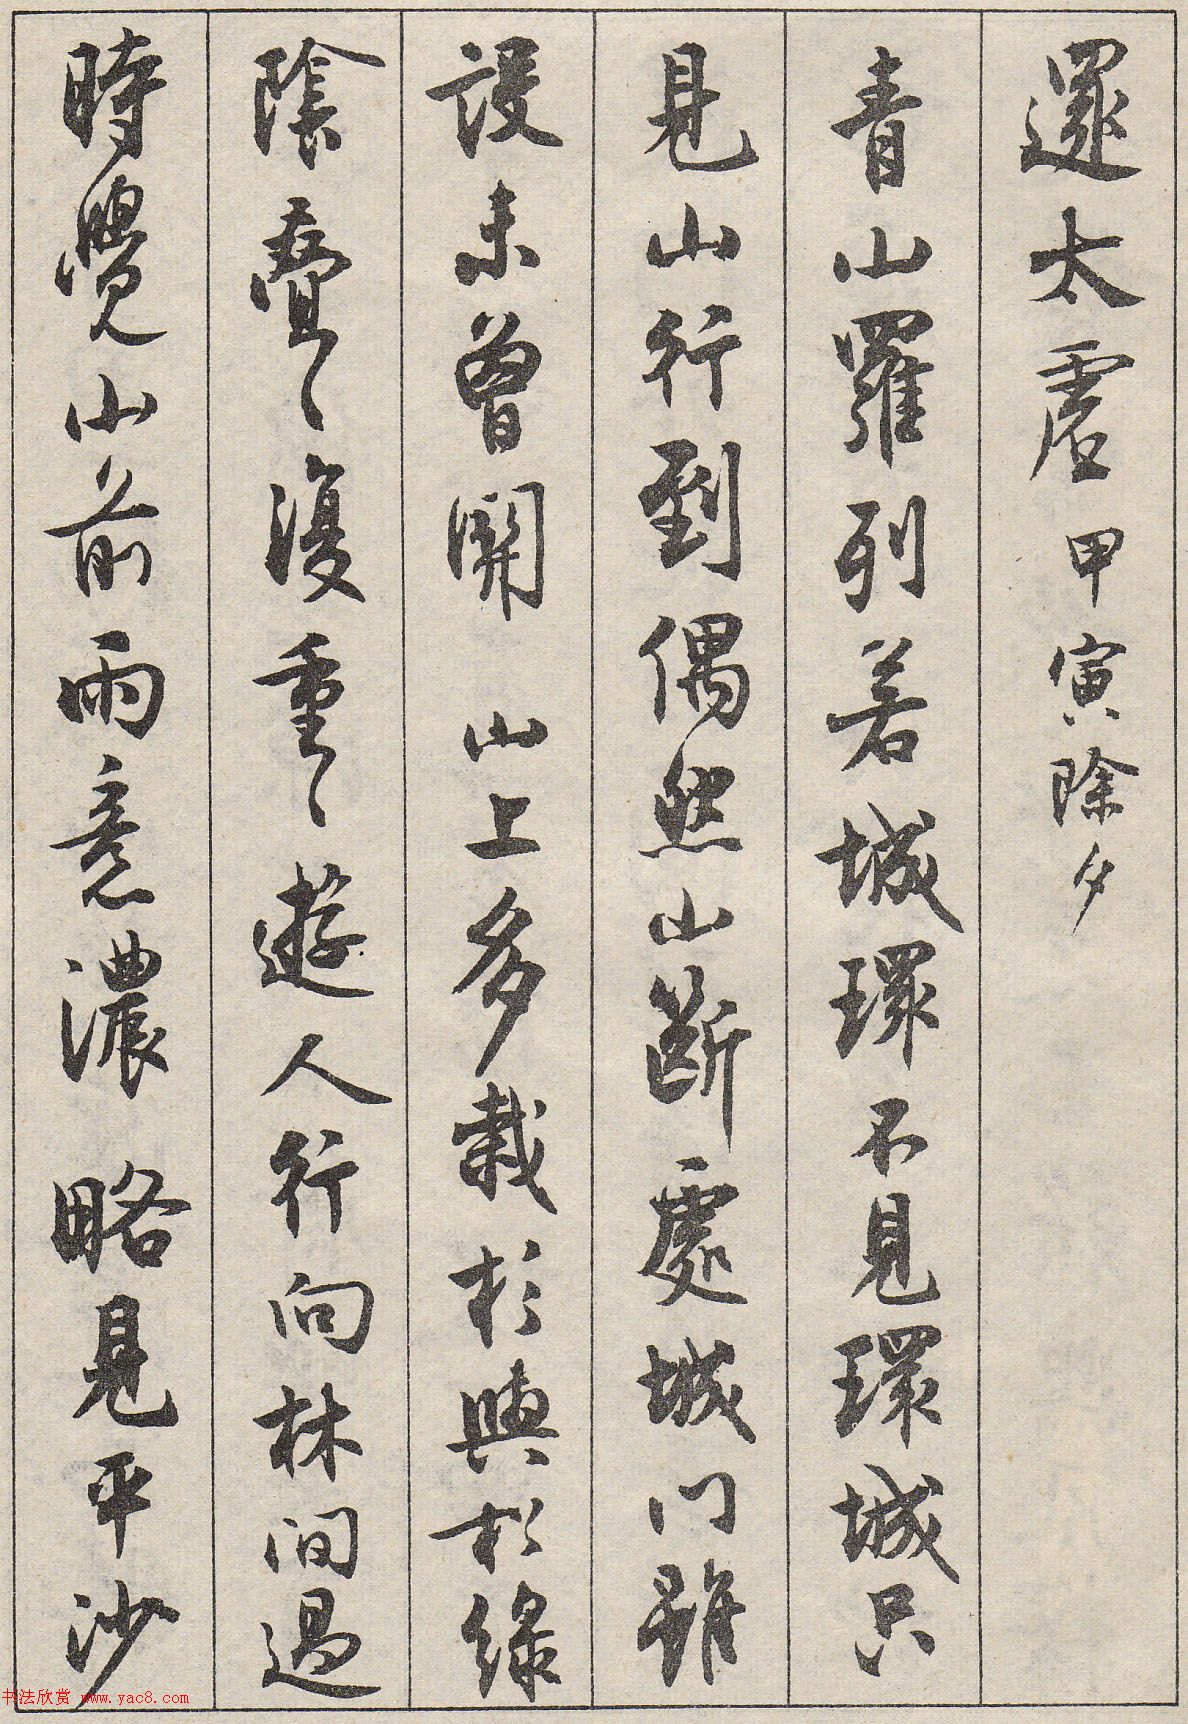 還太虛甲寅除夕
青山羅列若城環不見環城只
見山行到偶然山斷處城門雖
設未曾開山上多栽杉與松綠
陰疊〻復重〻遊人行向林間過
時覺山前雨意濃略見平沙
书法欣赏 www.yac8.com